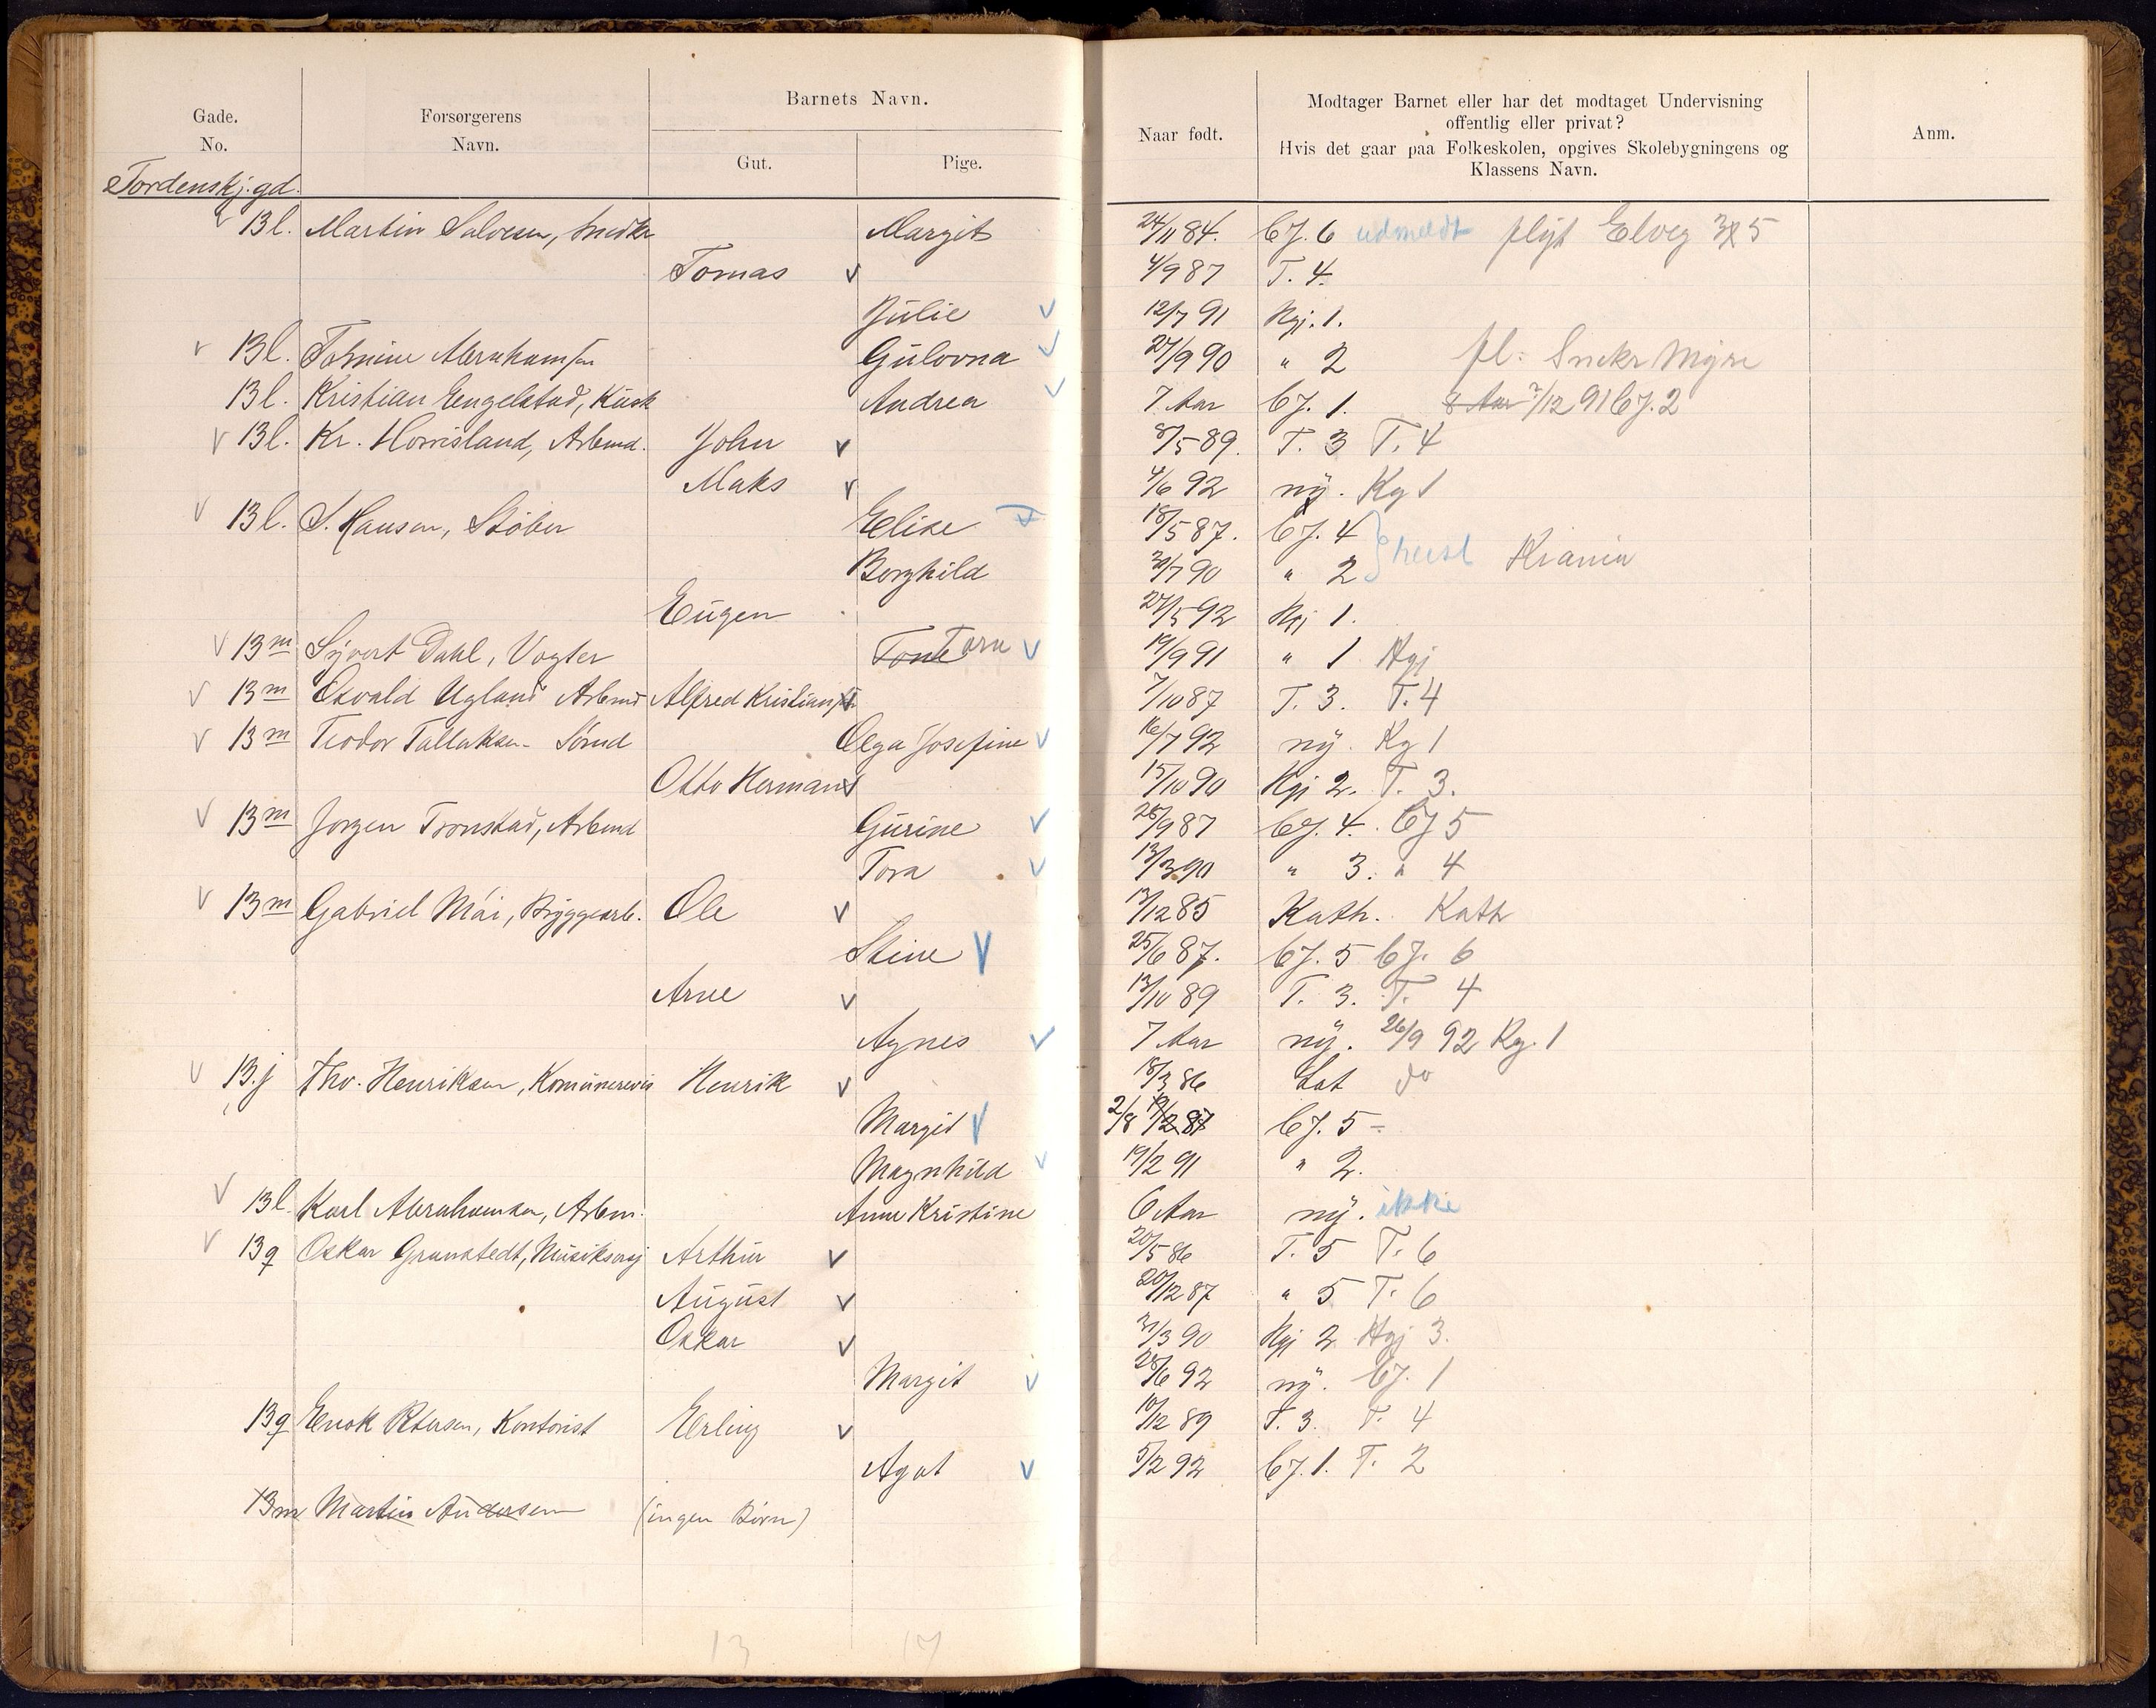 Gade.
No.
Forsørgerens
Navn.
Barnets Navn.
Gut.
Pige.
Naar født.
Modtager Barnet eller har det modtaget Undervisning
offentlig eller privat?
Hvis det gaar paa Folkeskolen, opgives Skolebygningens og
Klassens Navn.
Anm.
Tordenskj.gd.
13l. Martin Salvesen, Snedkr Margit 24/11 84. 6J. 6 udmeldt flyt Elveg 5
Tomas 4/9 87 T. 4.
Julie 12/7 91 Hgj. 1.
13l. Tomine Abrahamsen Gulovna 27/9 90 " 2 fl: Snekr Myre
13l. Kristian Engelstad, Kusk Andrea 7 Aar 6J. 1. 8 Aar 2/12 91 6J. 2
13l. Kr. Homsland, Arbmd. John 8/5 89. T. 3 T. 4
Maks 4/6 92 ny. Kg 1
13l. S. Hansen, Støber Elise 18/5 87. 6J. 4
Borghild 30/7 90 " 2 reist Krania
Eugen 27/5 92 Hgj 1.
13m Syvert Dahl, Vogter Tone Tora 19/9 91 " 1 Hgj
13m Osvald Ugland Arbmd Alfred Kristiansen 7/10 87 T. 3. T. 4
13m Teodor Tallaksen Sømd Olga Josefine 16/7 92 ny. Kg 1
Otto Herman 15/10 90 Hgj 2. T. 3.
13m Jørgen Tronstad, Arbmd Gurine 26/9 87 6J. 4. 6J 5
Tora 13/3 90 " 3. " 4
13m Gabriel Møi, Bryggearb. Ole 13/12 85 Kath. Kath
Stine 25/6 87. 6J. 5 6J. 6
Arne 13/10 89 T. 3. T. 4
Agnes 7 Aar ny. 26/9 92 Kg. 1
13.j Thv. Henriksen, Komunerevis Henrik 18/3 86 Lat do
Margit 2/8 87 6J. 5
Magnhild 19/2 91 " 2.
13l. Karl Abrahamsen, Arbm. Anne Kristine 6 Aar ny. ikke
13q Oskar Granstedt, Musikserg Arthur 20/5 86 T. 5 T. 6
August 20/12 87 " 5 T. 6
Oskar 31/3 90 Hgj 2 Hgj 3.
Margit 28/6 92 ny. 6J. 1
13q Enok Petersen, Kontorist Erling 10/12 89 T. 3. T. 4
Agot 5/2 92 6J. 1. T. 2
13m Martin Andersen (ingen Børn)
13 17